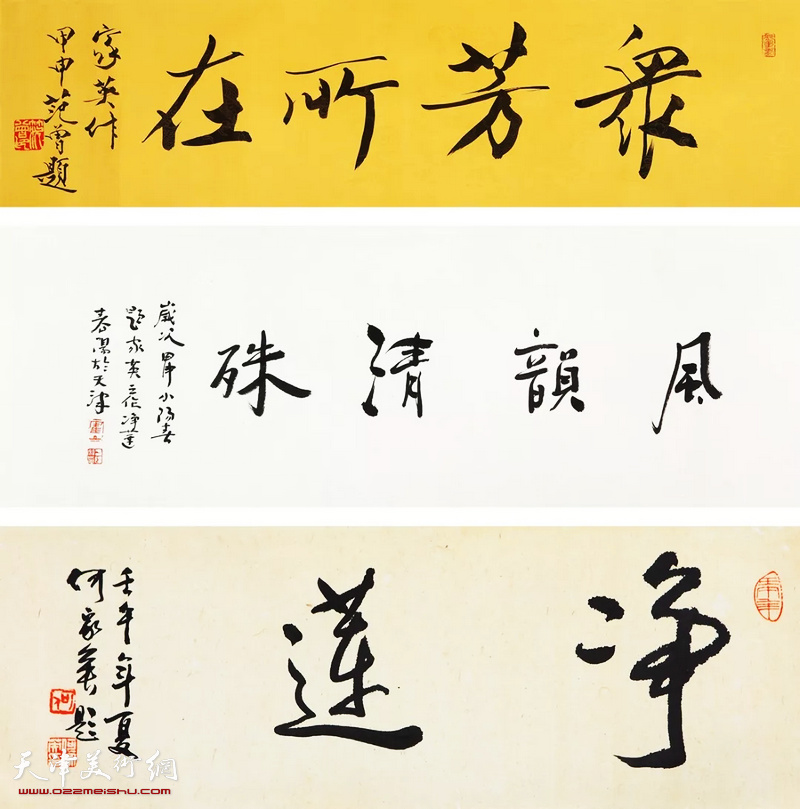 眾芳所在
家英作
甲申范曾題
風韻清殊
歲次甲申小陽春
題家英之作淨蓮
春陽於天津
净蓮
壬午年夏
何家英題
天津美術網
www.022meishu.com